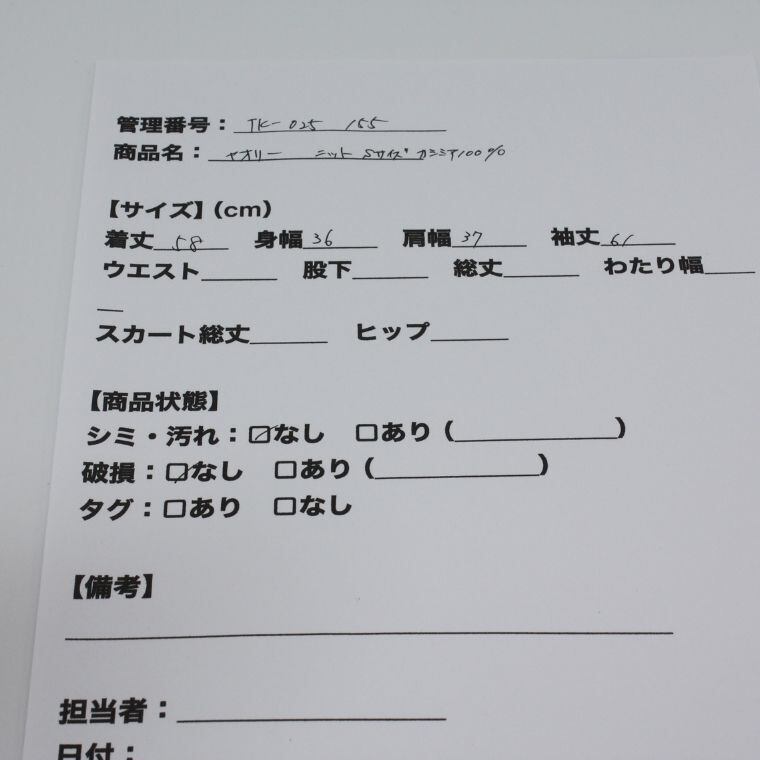 管理番号：TK-025 155
商品名：ヤオリー ニット Sサイズ カシミア100%
【サイズ】(cm)
着丈 58 身幅 36 肩幅 37 袖丈 61
ウエスト______ 股下______ 総丈______ わたり幅____
__
スカート総丈______ ヒップ______
【商品状態】
シミ・汚れ：☑なし □あり (_____________)
破損：☑なし □あり (_____________)
タグ：□あり □なし
【備考】
担当者：
日付：